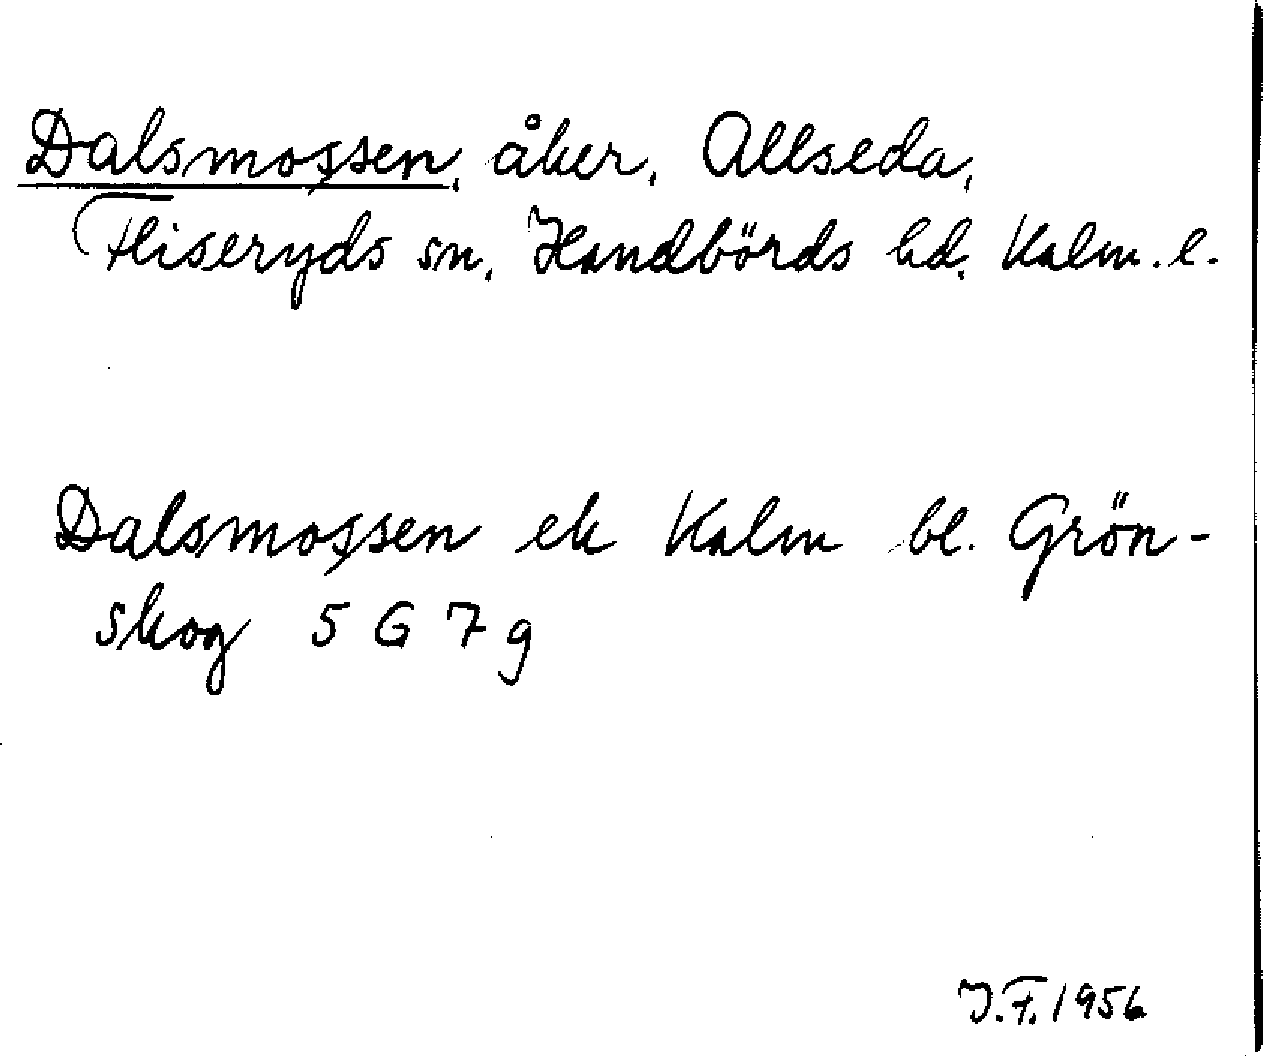 Dalsmossen, åker, Allseda,
Fliseryds sn, Handbörds hd, Kalm. l.
Dalsmossen ek Kalm bl. Grön-
skog 5 G 7 g
J.F. 1956